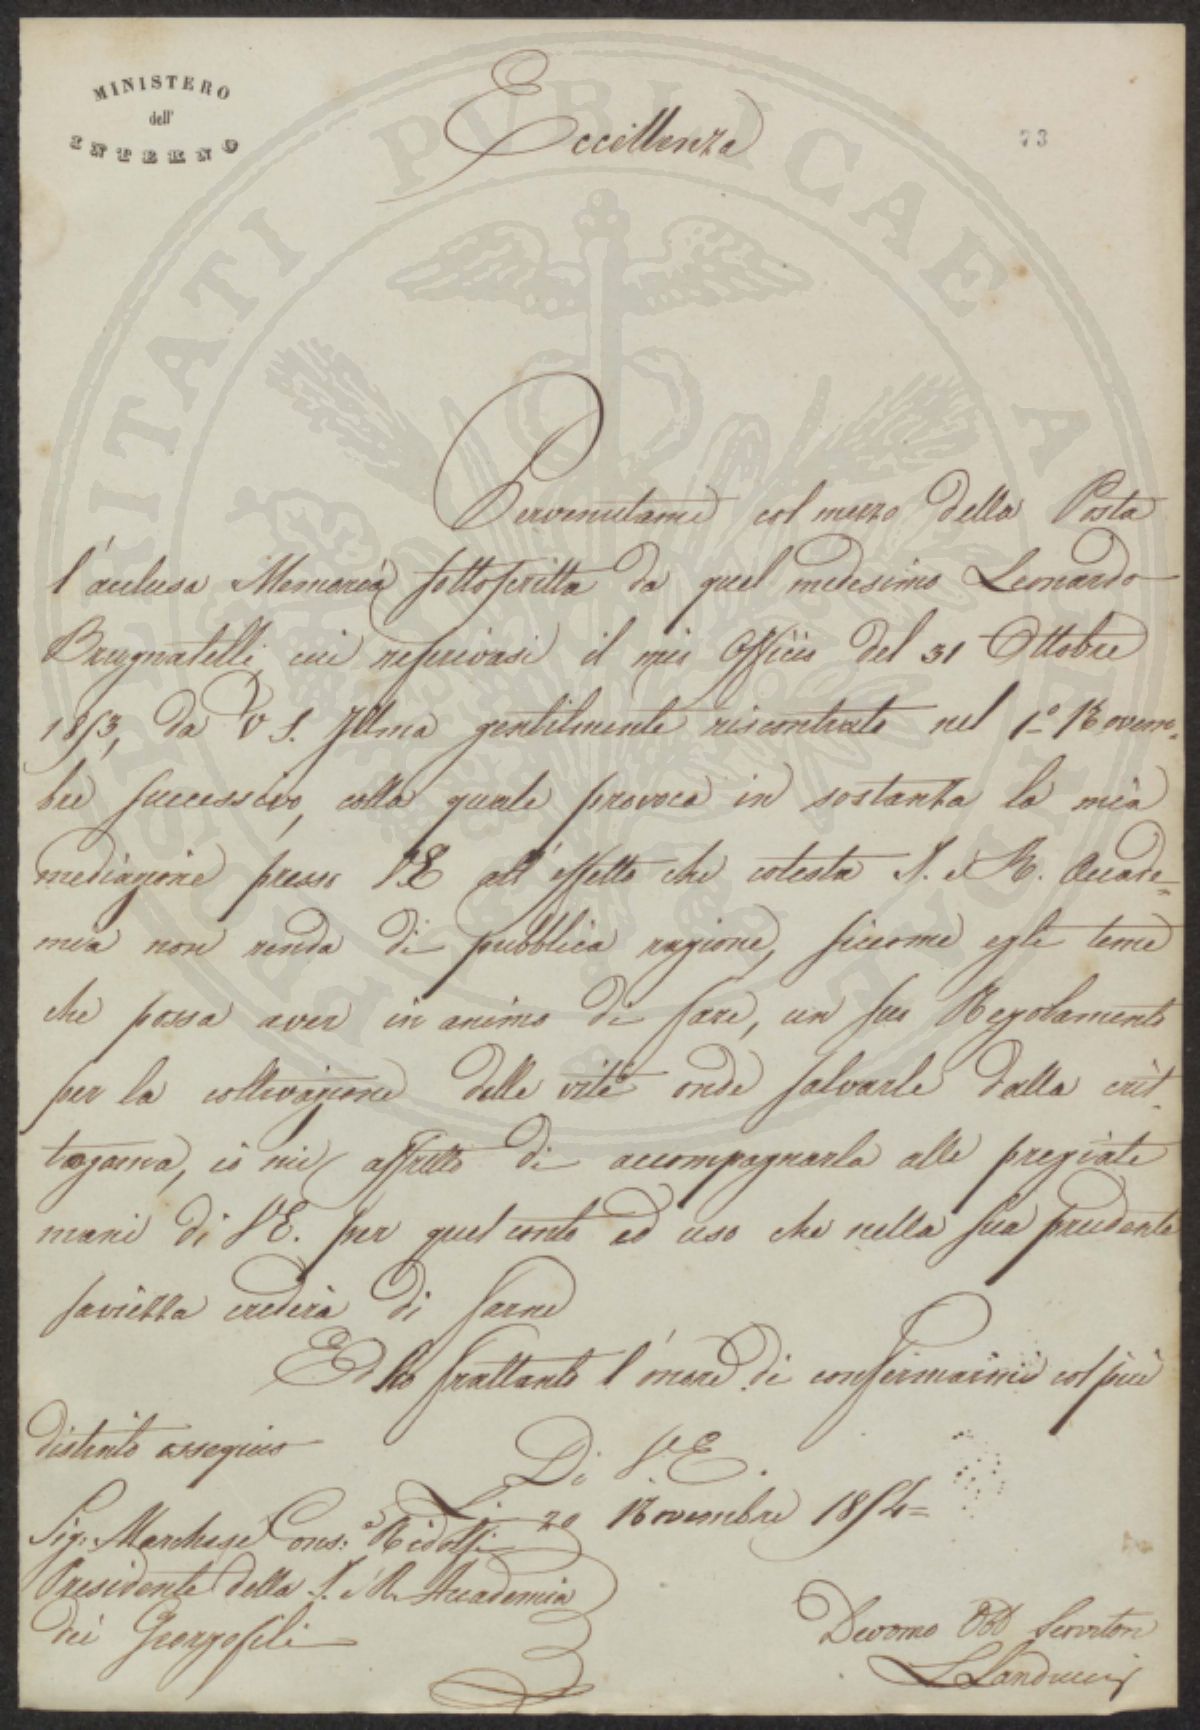 MINISTERO
dell'
INTERNO
Eccellenza
73
Pervenutami col mezzo della Posta
l'acclusa Memoria sottoscritta da quel medesimo Leonardo
Brugnatelli cui referivasi il mio Officio del 31 Ottobre
1853, da V S. Illma gentilmente riscontrato nel 1º Novem-
bre successivo, colla quale provoca in sostanza la mia
mediazione presso V.E all'effetto che cotesta I. e R. Accade=
mia non renda di pubblica ragione, siccome egli teme
che possa aver in animo di fare, un suo Regolamento
per la coltivazione delle viti onde salvarle dalla crit-
togama, io mi affretto di accompagnarla alle pregiate
mani di V.E. per quel conto ed uso che nella sua prudente
saviezza crederà di farne
Ed ho frattanto l'onore di confermarmi col più
distinto ossequio
Di V.E.
Li 20 Novembre 1854=
Sig: Marchese Cons: Ridolfi
Presidente della I. e R. Accademia
dei Georgofili
Devomo Obb Servitore
L Landucci
PROSPERITATI PUBLICAE AUGENDAE